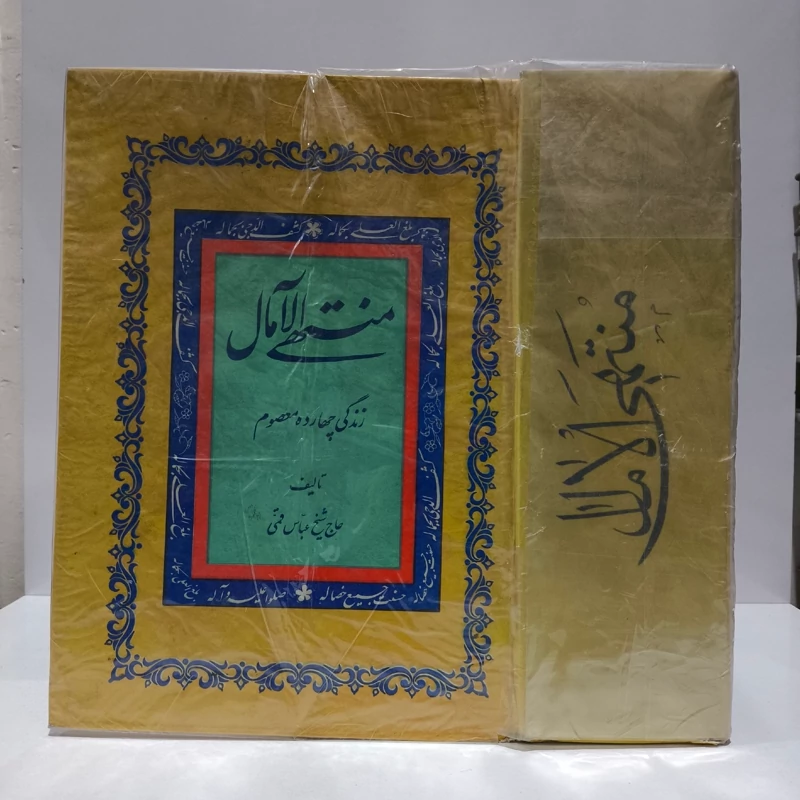 منتهی الآمال
زندگی چهارده معصوم
تالیف
حاج شیخ عباس قمی
بلغ العلی بکماله
کشف الدجی بجماله
حسنت جمیع خصاله
صلوا علیه و آله
مُنتَهَی الآمال